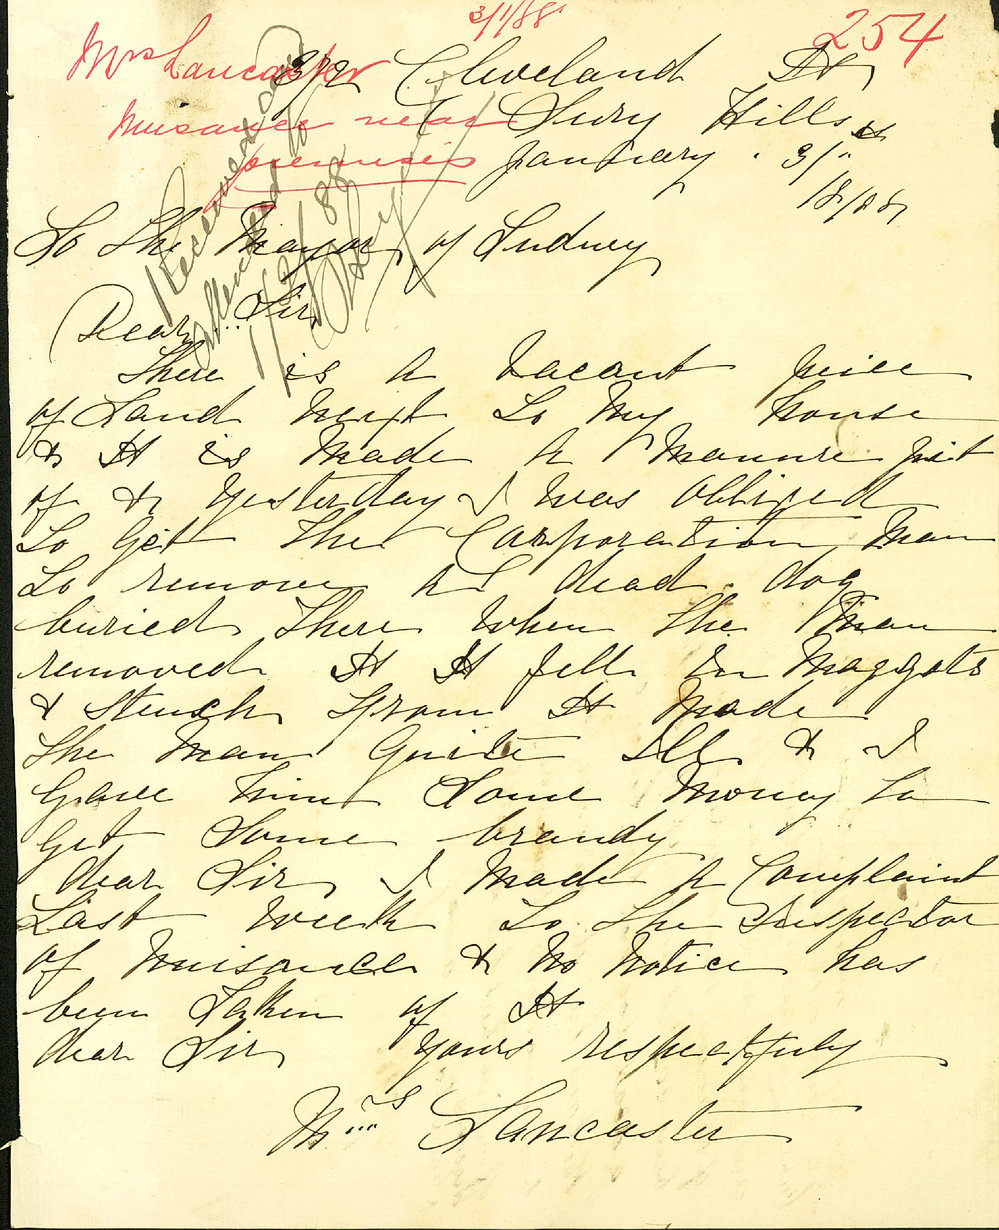 3/1/88
254
Mrs Lancaster
Nuisance near
premises
372 Cleveland St
Surry Hills
January 31st
1888
To the Mayor of Sydney
Received
attended to
1/2/88
Dear Sir
There is a vacant piece
of Land next to my house
& it is made a manure pit
of & yesterday I was obliged
to get the Corporation man
to remove a dead dog
buried there when the man
removed it it fell in maggots
& stench from it made
the man quite ill & I
gave him some money to
get some brandy
dear Sir I made a Complaint
Last week to the Inspector
of nuisance & no notice has
been taken of it
dear Sir yours respectfuly
Mrs Lancaster